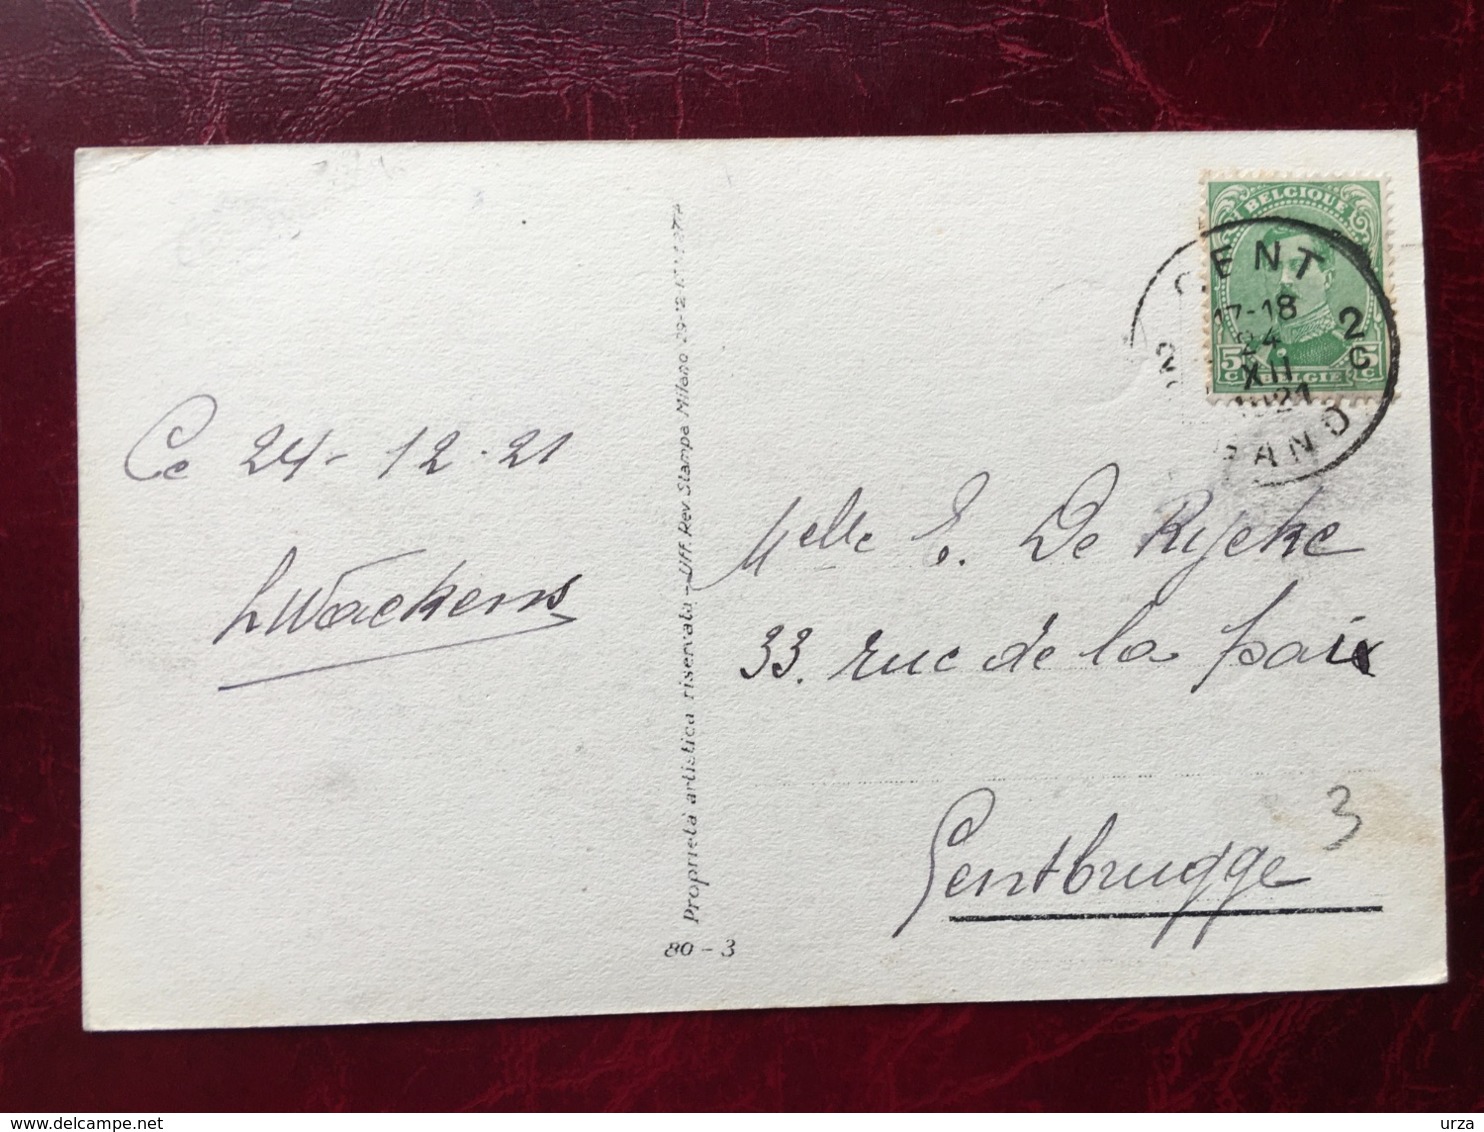 BELGIQUE
GENT
17-18
24
XII
1921
2C
5C
5C
BELGIË
GAND
Ce 24-12-21
LWackens
Proprietà artistica riservata - Uff. Rev. Stampa Milano
80-3
Melle E. De Rycke
33. rue de la paix
Gentbrugge
3
delcampe.net
urza